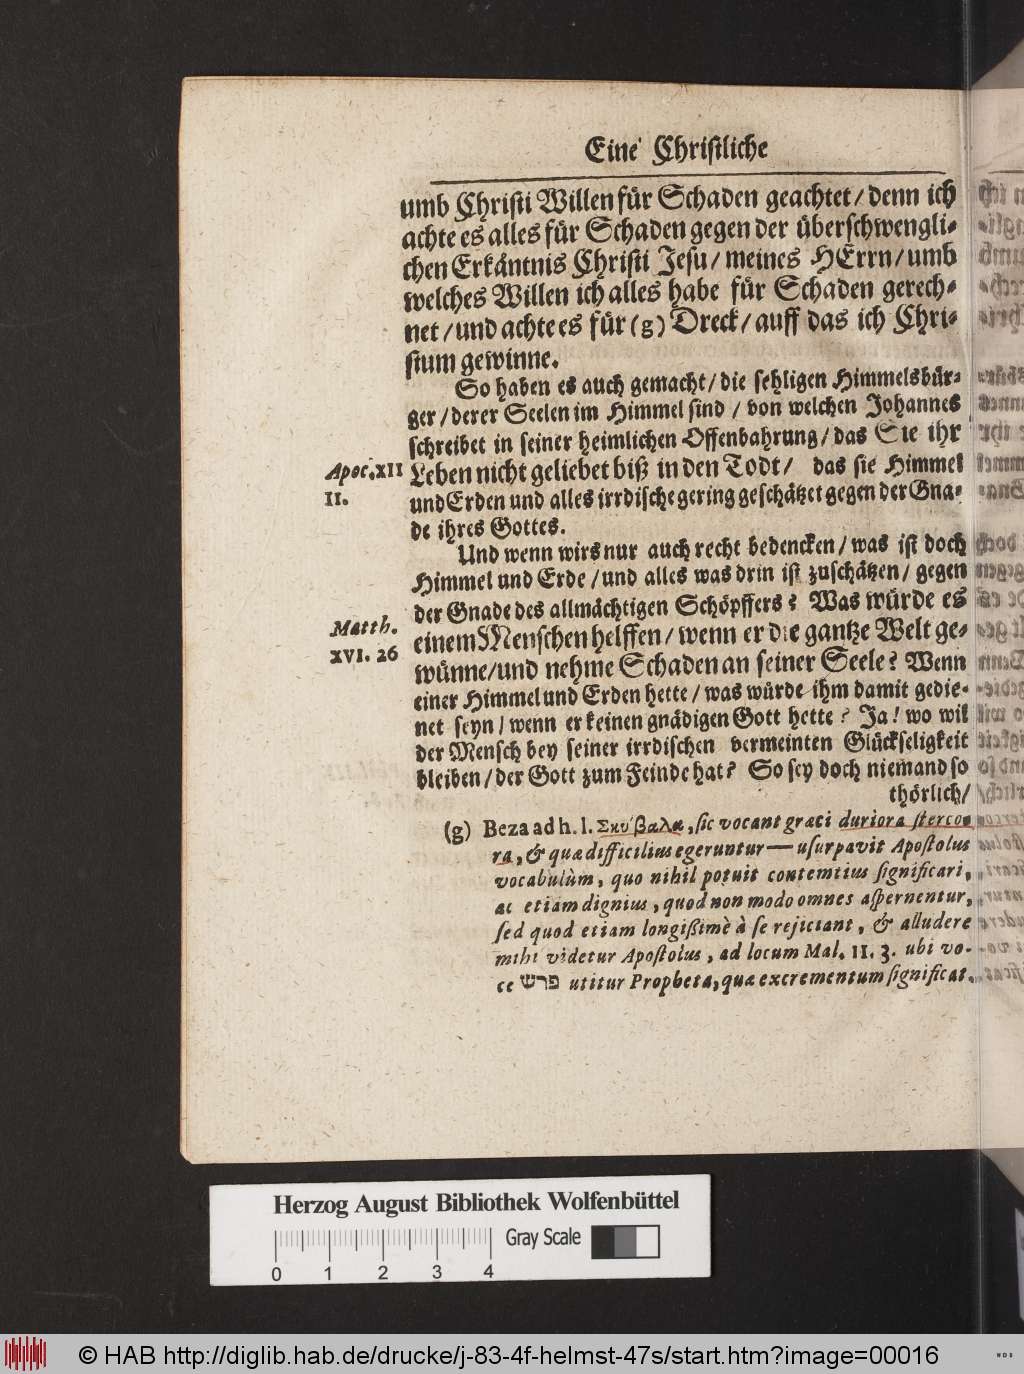 Eine Christliche
umb Christi Willen für Schaden geachtet/ denn ich
achte es alles für Schaden gegen der überschwengli-
chen Erkäntnis Christi Jesu/ meines HErrn/ umb
welches Willen ich alles habe für Schaden gerech-
net/ und achte es für (g) Dreck/ auff das ich Chri-
stum gewinne.
So haben es auch gemacht/ die sehligen Himmelsbür-
ger/ derer Seelen im Himmel sind / von welchen Johannes
schreibet in seiner heimlichen Offenbahrung/ das Sie ihr
Apoc. XII
11.
Leben nicht geliebet biß in den Todt/ das sie Himmel
und Erden und alles irrdische gering geschätzet gegen der Gna-
de ihres Gottes.
Und wenn wirs nur auch recht bedencken/ was ist doch
Himmel und Erde/ und alles was drin ist zuschätzen/ gegen
der Gnade des allmächtigen Schöpffers? Was würde es
Matth.
XVI. 26
einem Menschen helffen/ wenn er die gantze Welt ge-
wünne/ und nehme Schaden an seiner Seele? Wenn
einer Himmel und Erden hette/ was würde ihm damit gedie-
net seyn/ wenn er keinen gnädigen Gott hette? Ja! wo wil
der Mensch bey seiner irrdischen vermeinten Glückseligkeit
bleiben/ der Gott zum Feinde hat? So sey doch niemand so
thörlich/
(g) Beza ad h. l. Σκύβαλα, sic vocant græci duriora sterco-
ra, & quæ difficilius egeruntur — usurpavit Apostolus
vocabulùm, quo nihil potuit contemtius significari,
ac etiam dignius, quod non modo omnes aspernentur,
sed quod etiam longißimè à se rejiciant, & alludere
mihi videtur Apostolus, ad locum Mal. II. 3. ubi vo-
ce פרש utitur Propheta, quæ excrementum significat.
Herzog August Bibliothek Wolfenbüttel
Gray Scale
0 1 2 3 4
© HAB http://diglib.hab.de/drucke/j-83-4f-helmst-47s/start.htm?image=00016